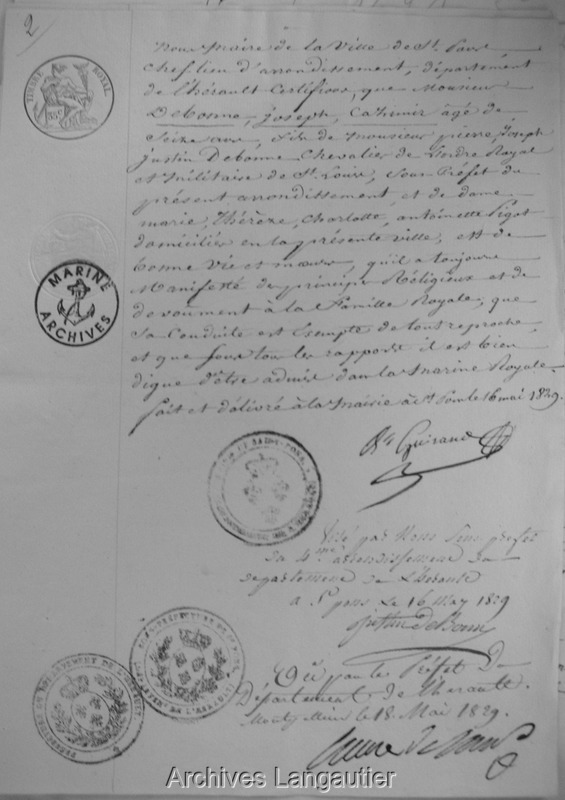 2
TIMBRE ROYAL
35c
MARINE
ARCHIVES
Nous Maire de la Ville de St. Pons
chef lieu d'arrondissement, département
de l'hérault Certifions que Monsieur
Debonne, joseph, Casimir âgé de
Seize ans, fils de monsieur pierre, joseph
justin Debonne Chevalier de l'ordre Royal
et Militaire de St. Louis, Sous-Préfet du
présent arrondissement, et de dame
marie, thérèze, Charlotte, antoinette Ligot
domiciliés en la présente ville, est de
bonne vie et mœurs, qu'il a toujours
Manifesté des principes Réligieux et de
devoument à la famille Royale, que
Sa Conduite est Exempte de tout reproche,
et que sous tous les rapports il est bien
digne d'être admis dans la Marine Royale.
fait et délivré à la Mairie à St. Pons le 16 mai 1829.
Guiraud
Visé par Nous Sous préfet
du 4me arrondissement du
département de L'hérault
a St pons Le 16 May 1829
Justin deBonne
Vû par le Préfet du
Département de l'hérault.
Montpellier le 18. Mai 1829.
Archives Langautier